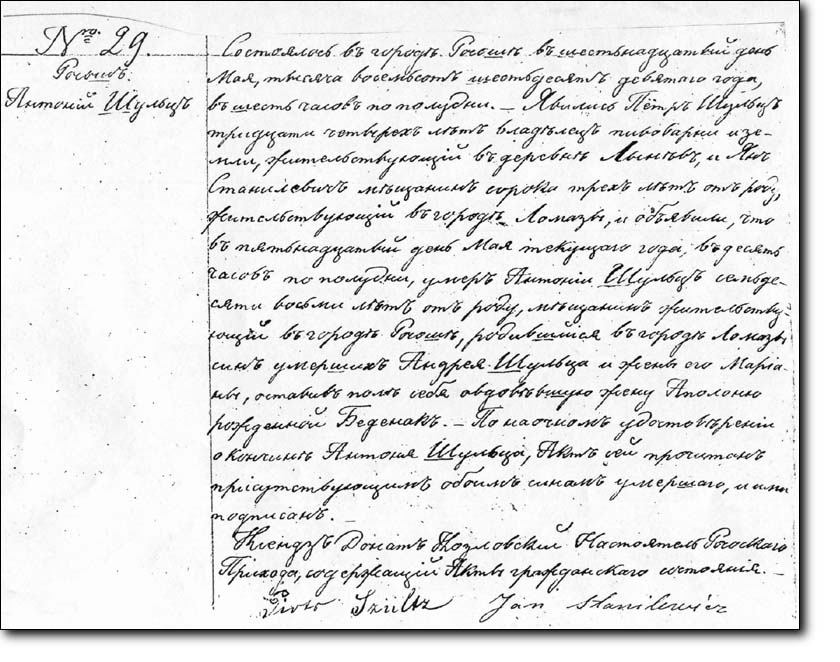 Nro 29.
Росошъ.
Антоній Шульцъ
Состоялось въ городѣ Росошѣ въ шестьнадцатый день
Мая, тысяча восемьсотъ шестьдесятъ девятаго года,
въ шесть часовъ по полудни. — Явились Пётръ Шульцъ
тридцати четырехъ лѣтъ владѣлецъ пивоварни и зе-
мли, жительствующій въ деревнѣ Лыневъ, и Янъ
Станилевичъ мѣщанинъ сорока трехъ лѣтъ отъ роду,
жительствующій въ городѣ Ломазы, и объявили, что
въ пятьнадцатый день Мая текущаго года, въ десять
часовъ по полудни, умеръ Антоніи Шульцъ семьде-
сяти восьми лѣтъ отъ роду, мѣщанинъ жительству-
ющій въ городѣ Росошѣ, родившійся въ городѣ Ломазы
синъ умершихъ Андрея Шульца и жены его Маріа-
ны, оставивъ полѣ себя овдовѣвшую жену Аполонію
рожденной Беденакъ. — По наочномъ удостовѣреніи
о кончинѣ Антонія Шульца, Актъ сей прочитанъ
присутствующимъ обоимъ синамъ умершаго, и ими
подписанъ. —
Ксендзъ Донатъ Козловскій Настоятель Росоского
Прихода, содержащій Акты гражданскаго состоянія. —
Piotr Szultz Jan Stanilewicz